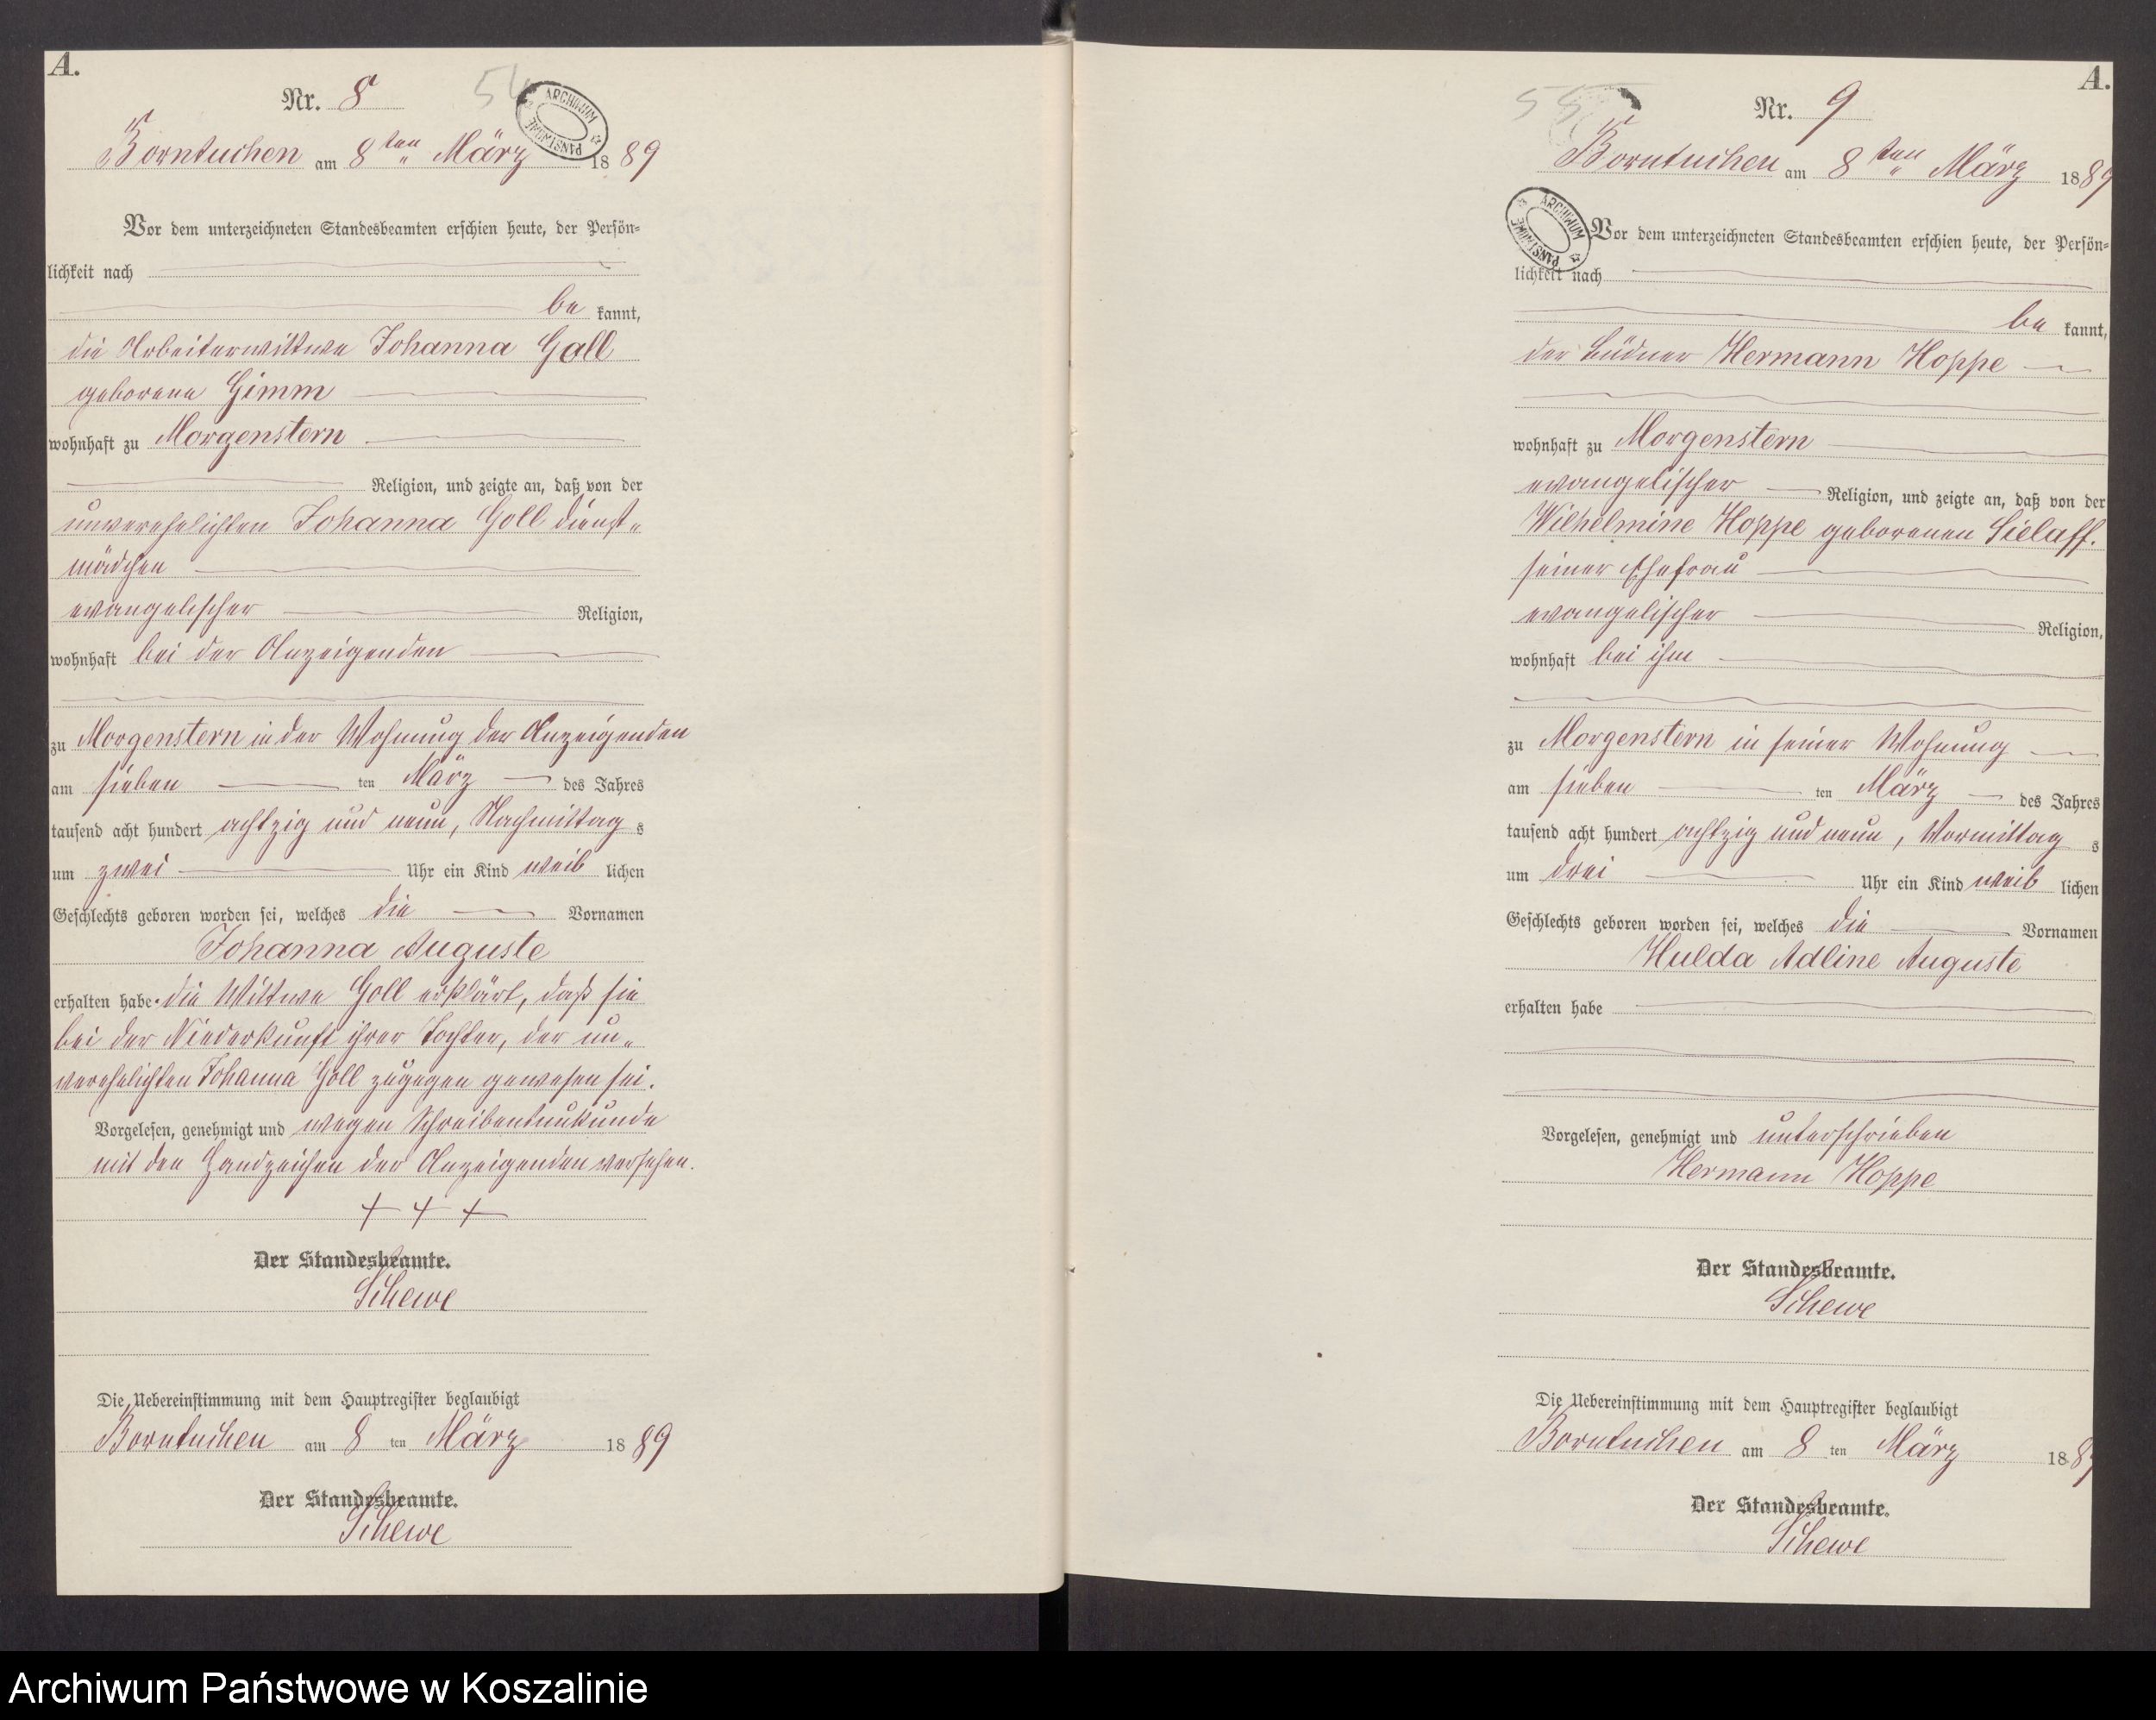 A.
Nr. 8
54
ARCHIWUM PAŃSTWOWE
Borntuchen am 8ten März 1889
Vor dem unterzeichneten Standesbeamten erschien heute, der Persön-
lichkeit nach
be kannt,
die Arbeiterwittwe Johanna Goll
geborene Gimm
wohnhaft zu Morgenstern
Religion, und zeigte an, daß von der
unverehelichten Johanna Goll dienst-
mädchen
evangelischer Religion,
wohnhaft bei der Anzeigenden
zu Morgenstern in der Wohnung der Anzeigenden
am sieben ten März des Jahres
tausend acht hundert achtzig und neun, Nachmittag s
um zwei Uhr ein Kind weib lichen
Geschlechts geboren worden sei, welches die Vornamen
Johanna Auguste
erhalten habe. die Wittwe Goll erklärt, daß sie
bei der Niederkunft ihrer Tochter, der un-
verehelichten Johanna Goll zugegen gewesen sei.
Vorgelesen, genehmigt und wegen Schreibensunkunde
mit den Handzeichen der Anzeigenden versehen.
+ + +
Der Standesbeamte.
Schewe
Die Uebereinstimmung mit dem Hauptregister beglaubigt
Borntuchen am 8 ten März 1889
Der Standesbeamte.
Schewe
A.
Nr. 9
55
Borntuchen am 8ten März 1889
ARCHIWUM PAŃSTWOWE
Vor dem unterzeichneten Standesbeamten erschien heute, der Persön-
lichkeit nach
be kannt,
der Büdner Hermann Hoppe
wohnhaft zu Morgenstern
evangelischer Religion, und zeigte an, daß von der
Wilhelmine Hoppe geborenen Sielaff.
seiner Ehefrau
evangelischer Religion,
wohnhaft bei ihm
zu Morgenstern in seiner Wohnung
am sieben ten März des Jahres
tausend acht hundert achtzig und neun, Vormittag s
um drei Uhr ein Kind weib lichen
Geschlechts geboren worden sei, welches die Vornamen
Hulda Adline Auguste
erhalten habe
Vorgelesen, genehmigt und unterschrieben
Hermann Hoppe
Der Standesbeamte.
Schewe
Die Uebereinstimmung mit dem Hauptregister beglaubigt
Borntuchen am 8 ten März 1889
Der Standesbeamte.
Schewe
Archiwum Państwowe w Koszalinie